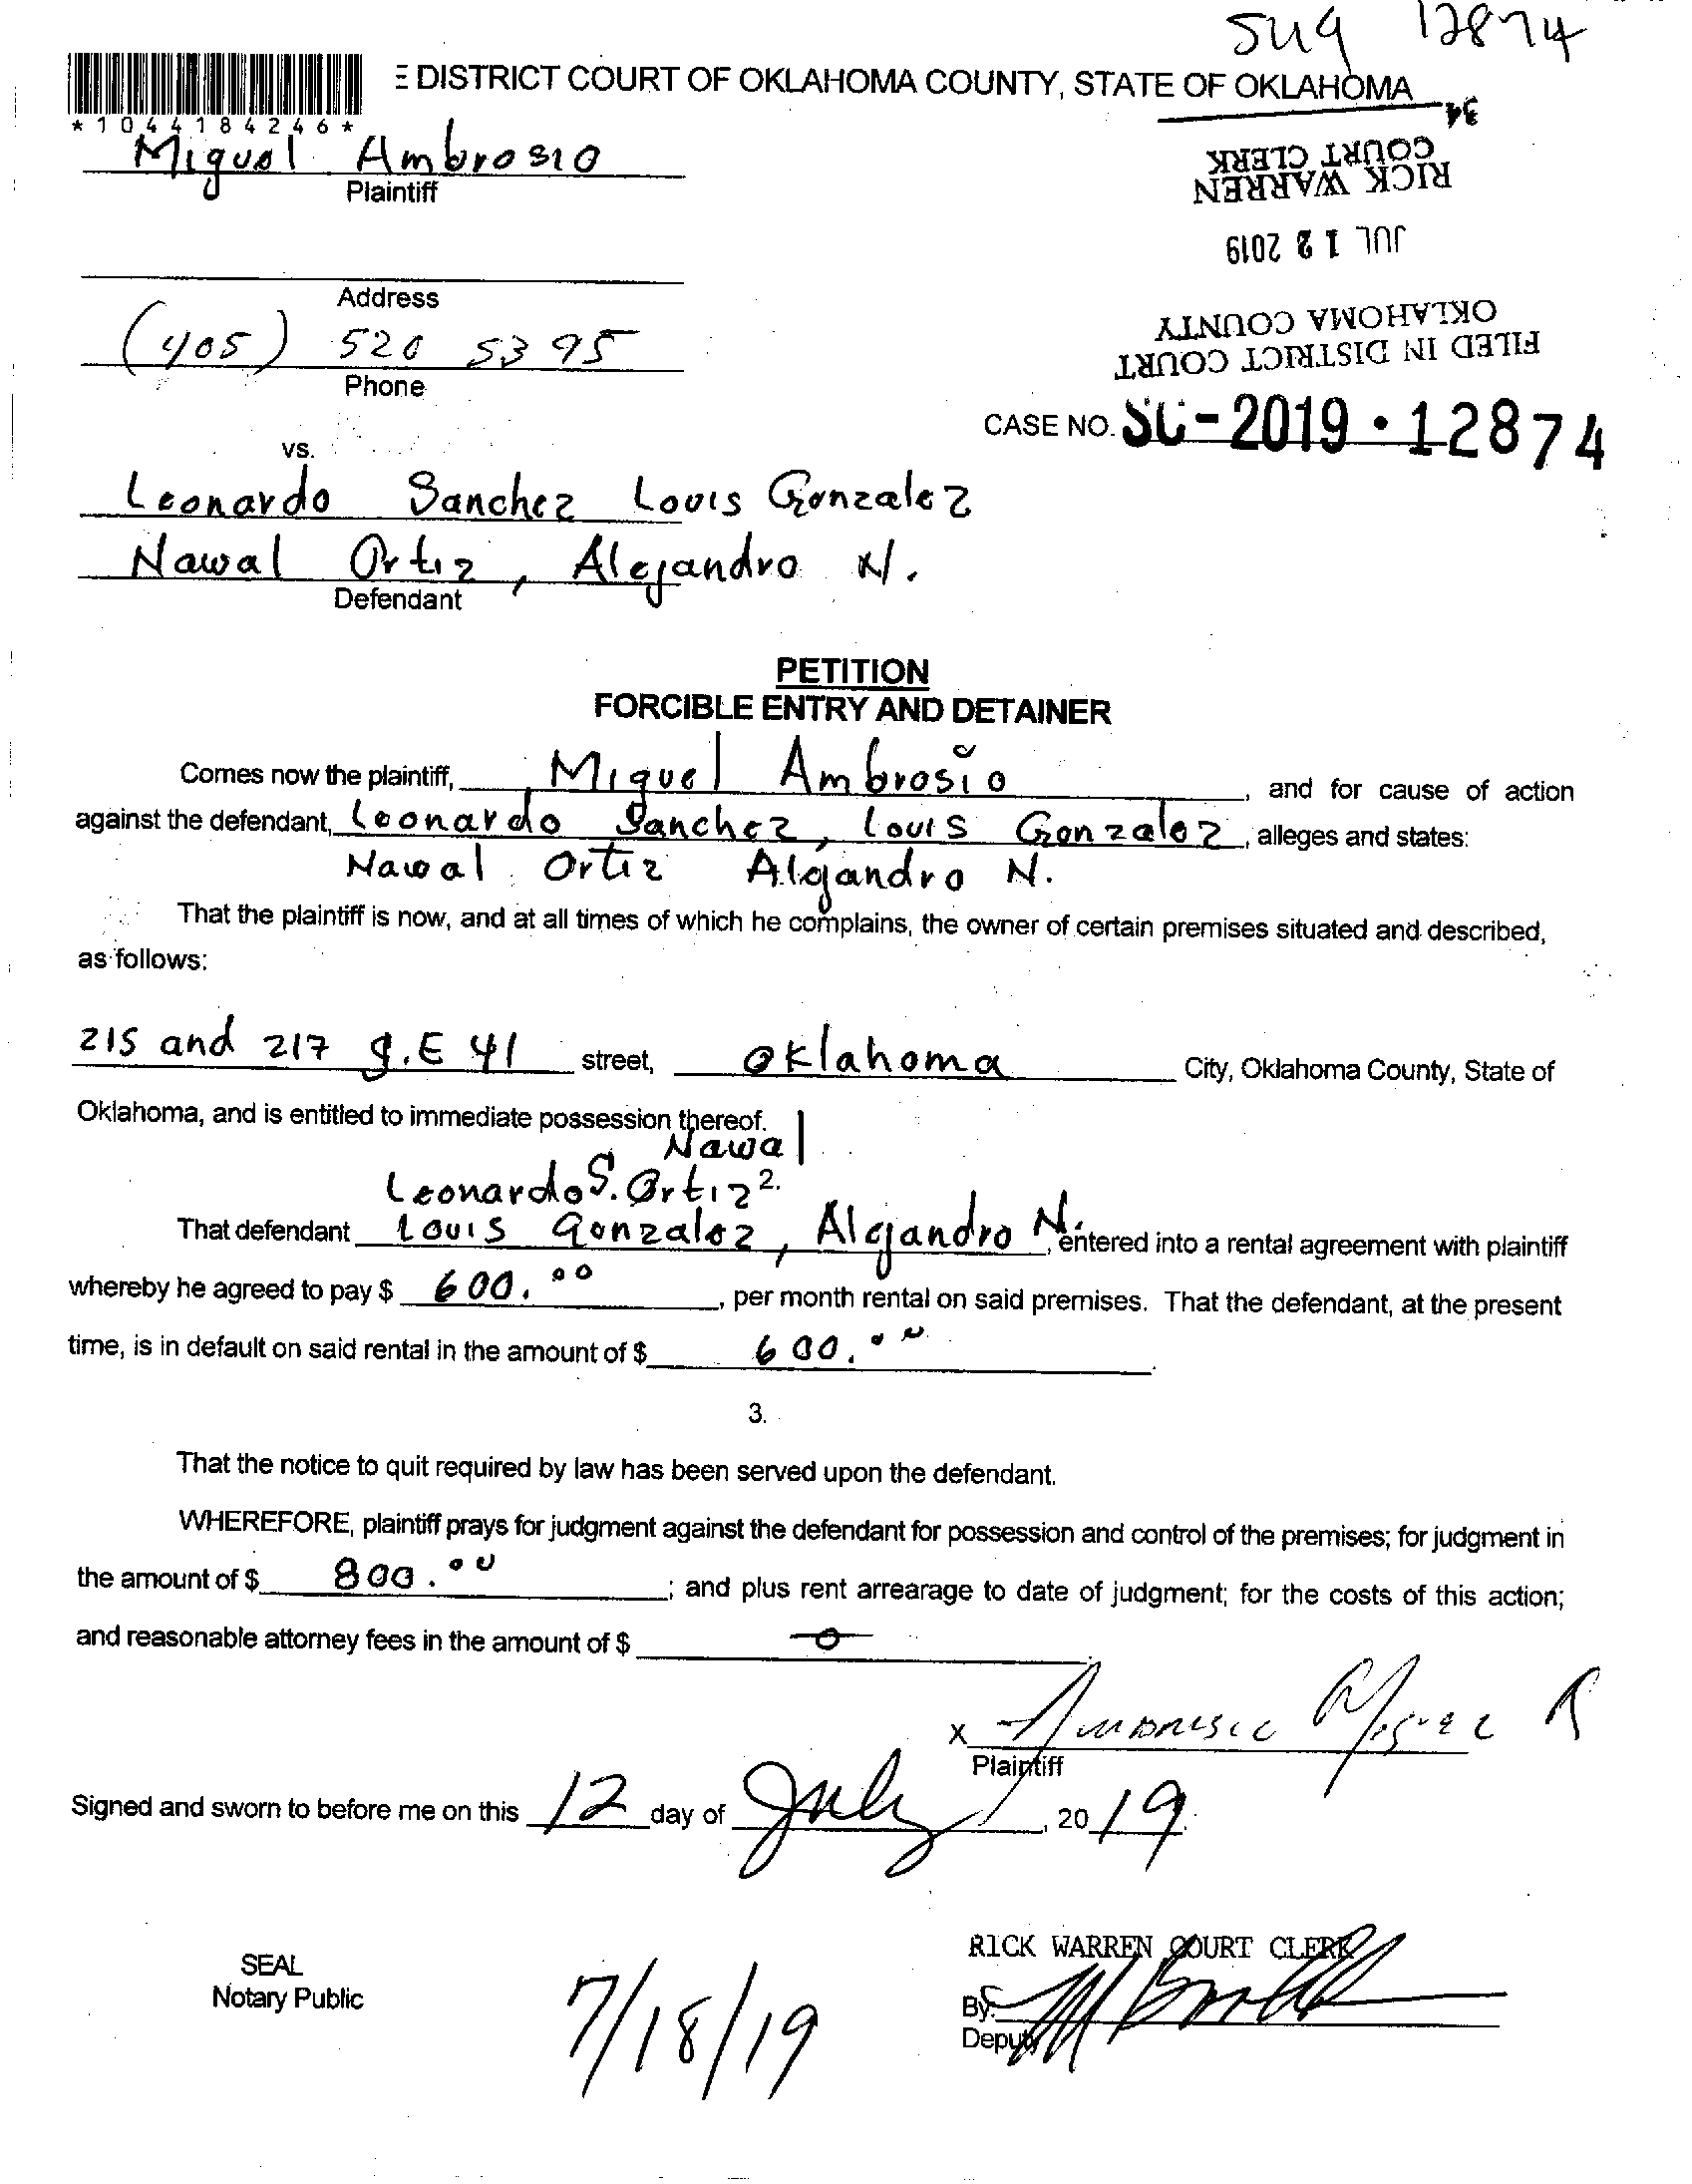 SU9 12874
E DISTRICT COURT OF OKLAHOMA COUNTY, STATE OF OKLAHOMA
*1044184246*
34
Miguel Ambrosio
Plaintiff
RICK WARREN
COURT CLERK
JUL 12 2019
Address
FILED IN DISTRICT COURT
OKLAHOMA COUNTY
(405) 520 5395
Phone
CASE NO. SC-2019·12874
vs.
Leonardo Sanchez Louis Gonzalez
Nawal Ortiz, Alejandro N.
Defendant
PETITION
FORCIBLE ENTRY AND DETAINER
Comes now the plaintiff, Miguel Ambrosio, and for cause of action
against the defendant, Leonardo Sanchez, Louis Gonzalez, alleges and states:
Nawal Ortiz Alejandro N.
That the plaintiff is now, and at all times of which he complains, the owner of certain premises situated and described,
as follows:
215 and 217 S.E 41 street, Oklahoma City, Oklahoma County, State of
Oklahoma, and is entitled to immediate possession thereof.
Nawal
Leonardo S. Ortiz 2.
That defendant Louis Gonzalez, Alejandro N., entered into a rental agreement with plaintiff
whereby he agreed to pay $ 600.00, per month rental on said premises. That the defendant, at the present
time, is in default on said rental in the amount of $ 600.00.
3.
That the notice to quit required by law has been served upon the defendant.
WHEREFORE, plaintiff prays for judgment against the defendant for possession and control of the premises; for judgment in
the amount of $ 800.00; and plus rent arrearage to date of judgment; for the costs of this action;
and reasonable attorney fees in the amount of $ 0
X
Plaintiff
Signed and sworn to before me on this 12 day of July, 2019.
RICK WARREN COURT CLERK
SEAL
Notary Public
7/18/19
By:
Deputy